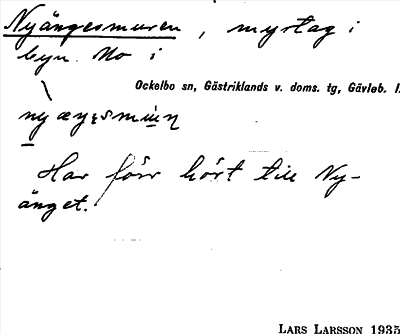 Nyängesmuren, myrtag i
byn No i
Ockelbo sn, Gästriklands v. doms. tg, Gävleb. l.
Har förr hört till Ny-
änget.
LARS LARSSON 1935